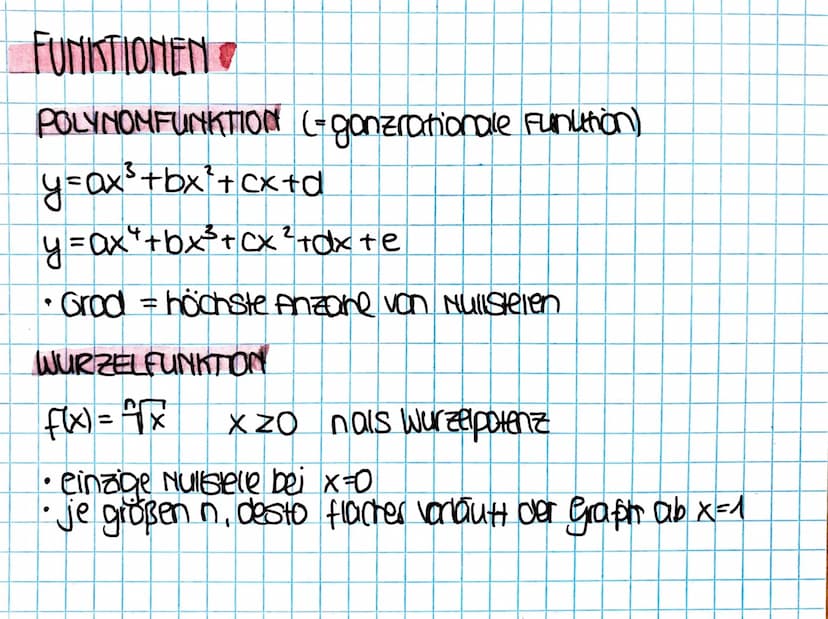 FUNKTIONEN
POLYNOMFUNKTION (=ganzrationale Funktion)
y=ax³+bx²+cx+d
y=ax⁴+bx³+cx²+dx+e
• Grad = höchste Anzahl von Nullstellen
WURZELFUNKTION
f(x) = ⁿ√x x≥0 n als Wurzelpotenz
• einzige Nullstelle bei x=0
• je größer n, desto flacher verläuft der Graph ab x=1